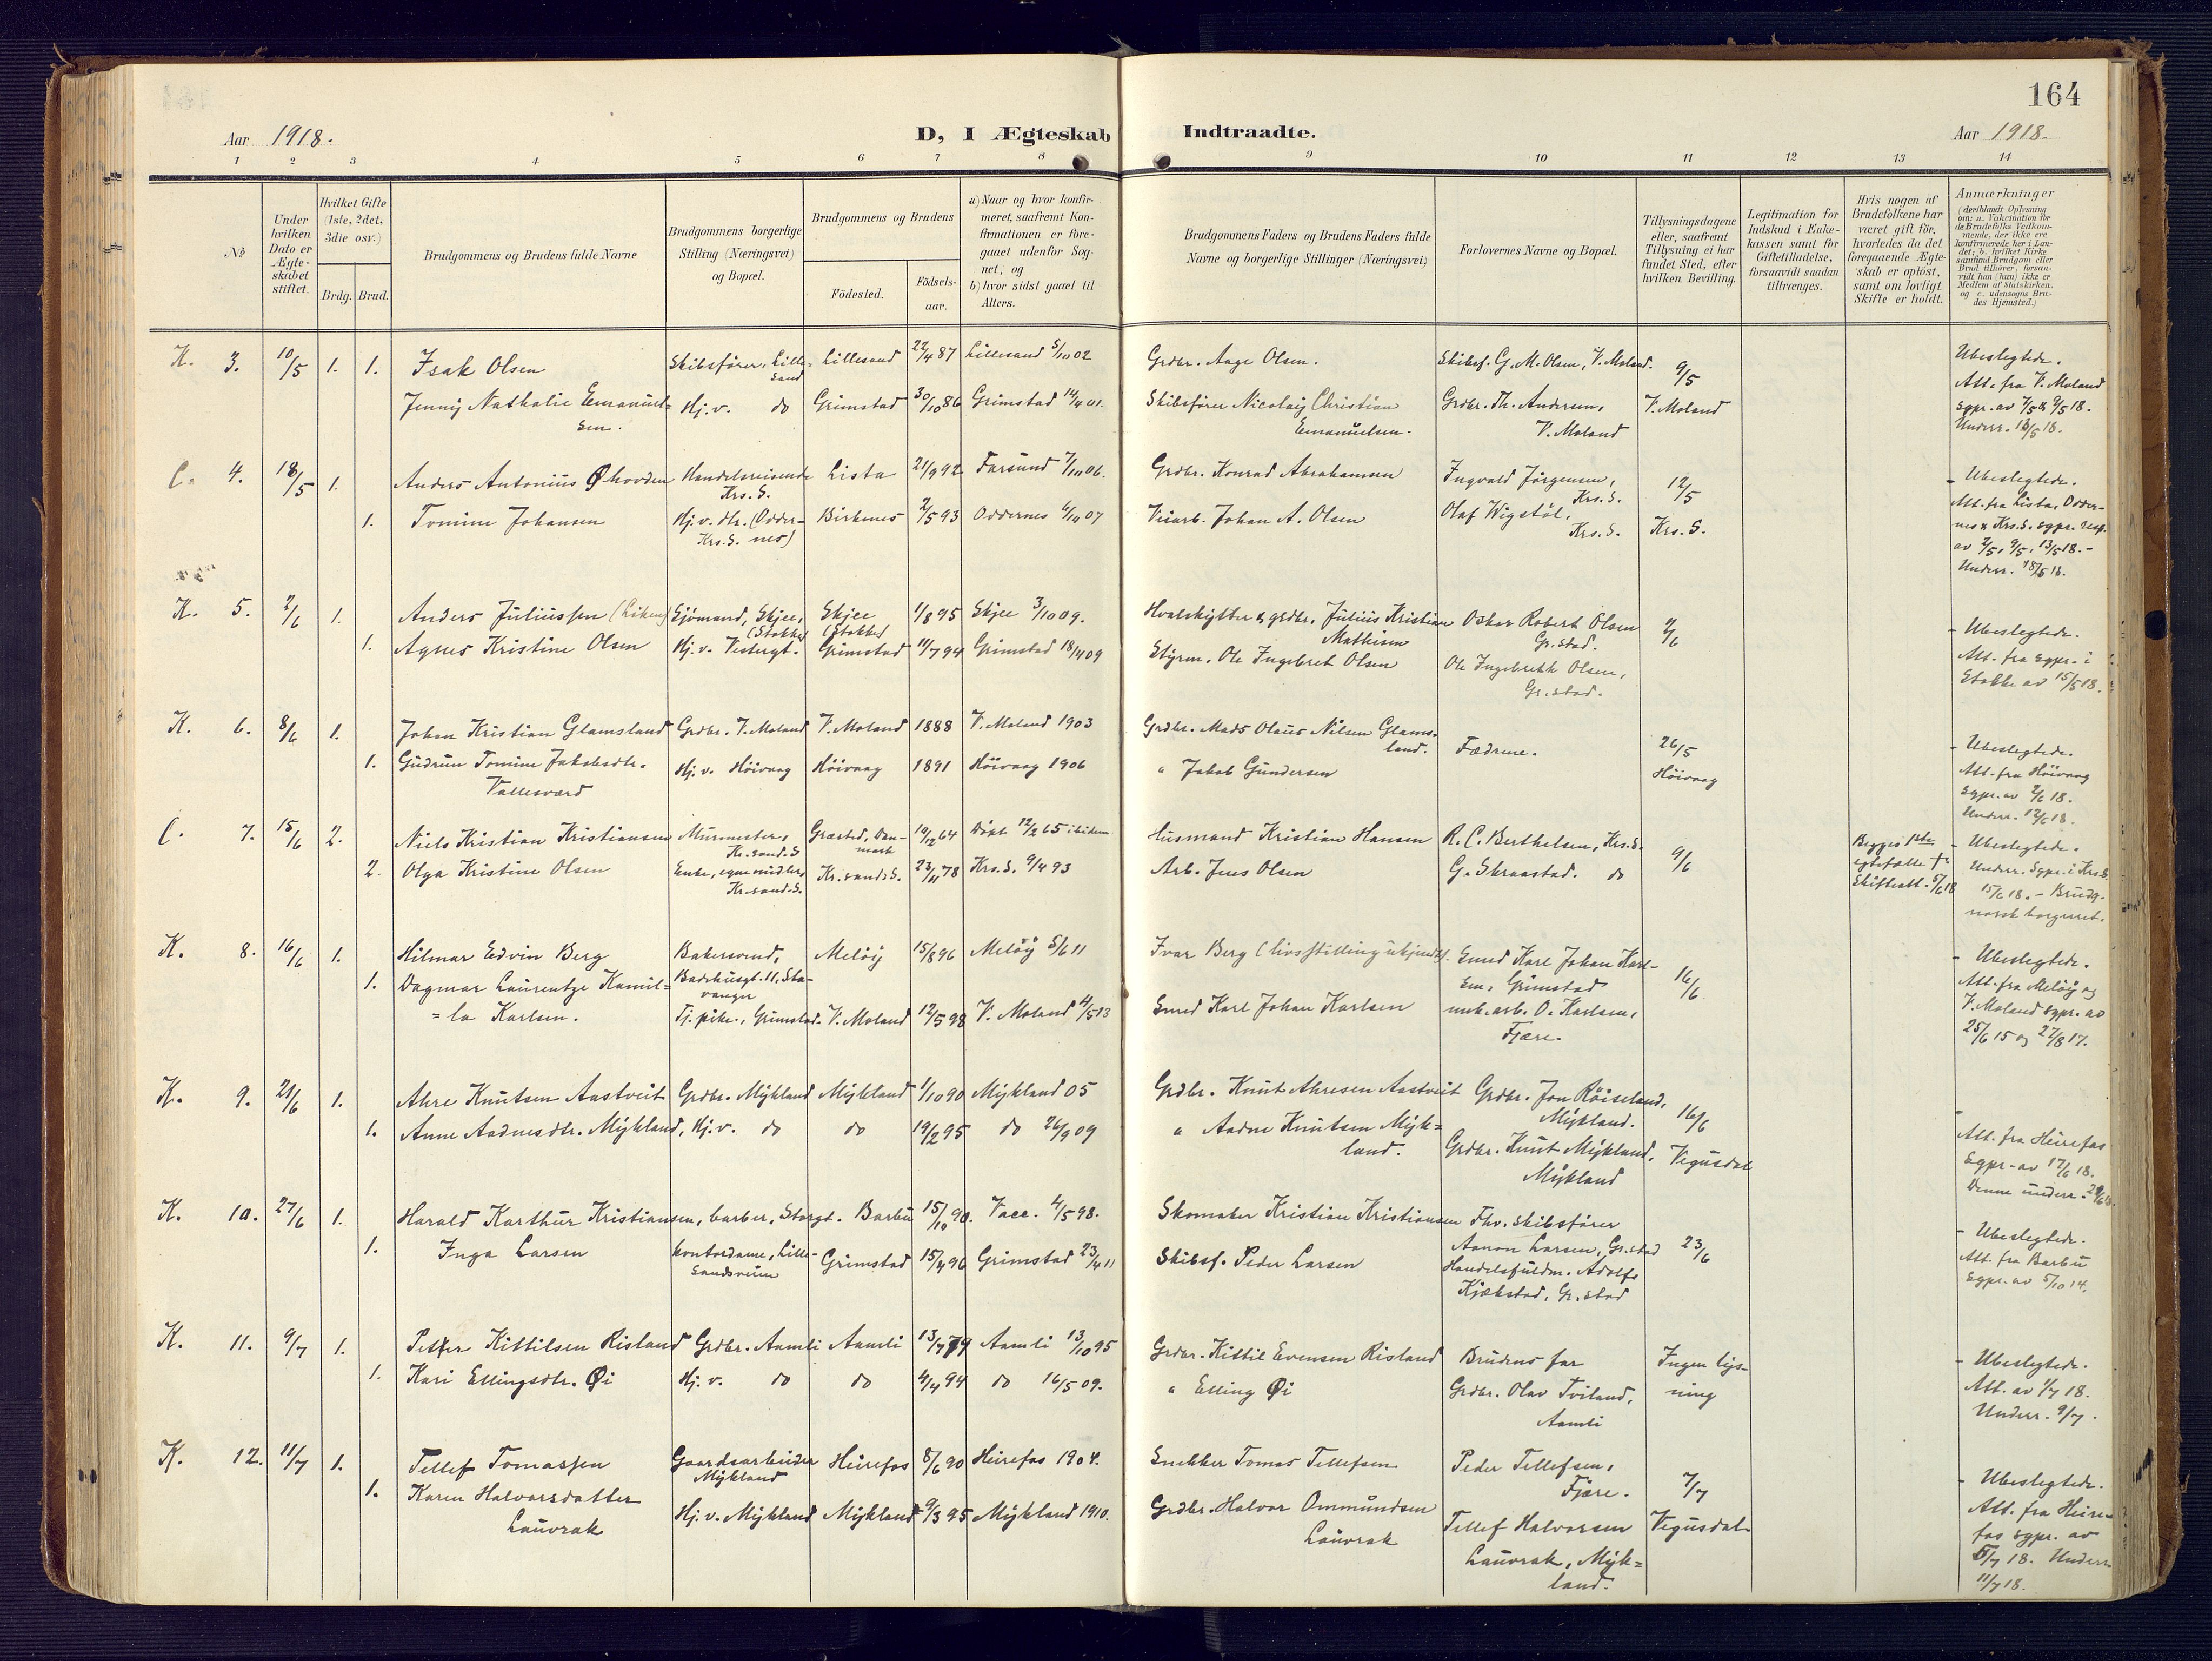 164
Aar 1918.
D, I Ægteskab Indtraadte.
Aar 1918.
1 2 3 4 5 6 7 8 9 10 11 12 13 14
No
Under hvilken Dato er Ægteskabet stiftet.
Hvilket Gifte (1ste, 2det, 3die osv.)
Brdg. Brud.
Brudgommens og Brudens fulde Navne
Brudgommens borgerlige Stilling (Næringsvei) og Bopæl.
Brudgommens og Brudens
Födested.
Födselsaar.
a) Naar og hvor konfirmeret, saafremt Konfirmationen er foregaaet udenfor Sognet, og
b) hvor sidst gaaet til Alters.
Brudgommens Faders og Brudens Faders fulde Navne og borgerlige Stillinger (Næringsvei)
Forlovernes Navne og Bopæl.
Tillysningsdagene eller, saafremt Tillysning ei har fundet Sted, efter hvilken Bevilling.
Legitimation for Indskud i Enkekassen samt for Giftetilladelse, forsaavidt saadan tiltrænges.
Hvis nogen af Brudefolkene har været gift för, hvorledes da det foregaaende Ægteskab er oplöst, samt om lovligt Skifte er holdt.
Anmærkninger
(deriblandt Oplysning om: a. Vakcination for de Brudefolks Vedkommende, der ikke ere konfirmerede her i Landet; b. hvilket Kirkesamfund Brudgom eller Brud tilhörer, forsaavidt han (hun) ikke er Medlem af Statskirken, og c. udensogns Brudes Hjemsted.)
K. 3. 10/5 1. 1. Isak Olsen Skibsfører, Lillesand Lillesand 22/4 87 Lillesand 5/10 02 Grdbr. Aage Olsen. Skibsf. G. M. Olsen, V. Moland. 9/5 Ubeslegtede.
Jenny Nathalie Emanuelsen. Hj.v. do Grimstad 30/10 86 Grimstad 14/4 01. Skibsfører Nicolay Christian Emanuelsen. Grdbr. Th. Andersen, V. Moland V. Moland
Att. fra V. Moland
sgpr. av 7/5 & 9/5 18.
Underr. 13/5 18.
C. 4. 18/5 1. Anders Antonius Øhovden Handelsreisende Krs.S. Lista 21/9 92 Farsund 7/10 06. Grdbr. Konrad Abrahamsen Ingvald Jørgensen, Krs.S. 12/5 Ubeslegtede.
1. Tomine Johansen Hj.v. dtr. (Oddernes) Krs.S. Birkenes 2/5 93 Oddernes 6/10 07 Johan A. Olsen Olaf Wigstøl, Krs.S. Krs.S.
Att. fra Lista, Oddernes & Krs.S. sgpr. resp.
av 2/5, 9/5, 13/5 18.-
Underr. 18/5 18.
K. 5. 2/6 1. Anders Juliussen (Liken) Sjømand, Skjee, (Stokke) Skjee (Stokke) 1/8 95 Skjee 3/10 09. Hvalskytter & grdbr. Julius Kristian Mathisen Oskar Robert Olsen Gr.stad. 2/6 Ubeslegtede.
1. Agnes Kristine Olsen Hj.v. Vestergt. Grimstad 11/7 94 Grimstad 18/4 09 Styrm. Ole Ingebret Olsen Ole Ingebrekt Olsen, Gr.stad.
Att. fra sgpr. i
Stokke av 15/5 18.
K. 6. 8/6 1. Johan Kristian Glamsland Grdbr. V. Moland V. Moland 1888 V. Moland 1903 Grdbr. Mads Olaus Nilsen Glamsland. Fædrene. 26/5 Ubeslegtede.
1. Gudrun Tomine Jakobsdtr. Vallesværd Hj.v. Høivaag Høivaag 1891 Høivaag 1906 " Jakob Gundersen Høivaag
Att. fra Høivaag
sgpr. av 2/6 18.
Underr. 12/6 18.
C. 7. 15/6 2. Niels Kristian Kristiansen Murmester, Kr.sand.S Græsted, Danmark 10/12 64 Døpt 12/2 65 ibidem Husmand Kristian Hansen R. C. Berthelsen, Krs.S. 9/6 Begges første egtefælle † Ubeslegtede.
2. Olga Kristine Olsen Enke, egne midler, Kr.sand.S. Kr.sand.S. 23/11 78 Krs.S. 9/4 93 Arb. Jens Olsen G. Skraastad. do Skifteatt. 5/6 18
Underr. Sgpr. i Krs.S.
15/6 18. - Brudg.
norsk borgerret.
K. 8. 16/6 1. Hilmar Edvin Berg Bakersvend, Badehusgt. 11, Stavanger Meløy 15/8 96 Meløy 5/6 11 Ivar Berg (livsstilling ukjendt). Smed Karl Johan Karlsen, Grimstad 16/6 Ubeslegtede.
1. Dagmar Laurentze Kamilla Karlsen. Tj.pike, Grimstad. V. Moland 12/5 98 V. Moland 4/5 13 Smed Karl Johan Karlsen mek.arb. O. Karlsen, Fjære.
Att. fra Meløy og
V. Moland sgpr. av
25/6 15 og 27/8 17.
K. 9. 21/6 1. Ahre Knutsen Aastveit Grdbr. Mykland Mykland 1/10 90 Mykland 05 Grdbr. Knut Ahresen Aastveit Grdbr. Jon Røiseland, Mykland. 16/6
1. Anne Aadnesdtr. Mykland, Hj.v. do do 19/2 95 do 26/9 09 " Aadne Knutsen Mykland. Grdbr. Knut Mykland, Mykland Vegusdal
Att. fra Heirefos
Sgpr. av 17/6 18.
Denne underr.
K. 10. 27/6 1. Harald Karthur Kristiansen, barber, Storgt. Barbu 15/10 90. Vacc. 4/5 98. Skomaker Kristian Kristiansen Fhv. skibsfører Aanon Larsen, Gr.stad 23/6 Ubeslegtede.
1. Inga Larsen kontordame, Lillesandsveien Grimstad 15/4 96 Grimstad 23/4 11 Skibsf. Peder Larsen Handelsfuldm. Adolf Kjækstad, Gr.stad
Att. fra Barbu
sgpr. av 5/10 14.
K. 11. 9/7 1. Petter Kittilsen Risland Grdbr. Aamli Aamli 13/7 79 Aamli 13/10 95 Grdbr. Kittil Evensen Risland Brudens far Ingen lysning Ubeslegtede.
1. Kari Ellingsdtr. Øi Hj.v. do do 4/4 94 do 16/5 09. " Elling Øi Grdbr. Olav Tveiland, Aamli
Att. av 1/7 18.
Underr. 9/7.
K. 12. 11/7 1. Tellef Tomassen Gaardsarbeider Mykland Heirefos 8/6 90 Heirefos 1904. Snekker Tomas Tellefsen Peder Tellefsen, Fjære. 7/7 Ubeslegtede.
1. Karen Halvorsdatter Lauvrak Hj.v. Mykland Mykland 9/3 95 Mykland 1910. Grdbr. Halvor Ommundsen Lauvrak Tellef Halvorsen Lauvrak, Mykland. Vegusdal
Att. fra Heirefos sgpr. av
5/7 18. Underr.
11/7 18.